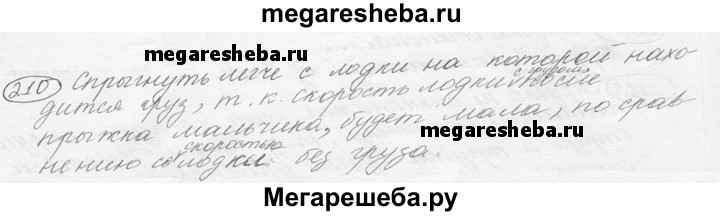 megaresheba.ru
210) Спрыгнуть легче с лодки на которой нахо-
дится груз, т.к. скорость лодки с грузом после
прыжка мальчика, будет мала, по срав-
нению со скоростью лодки без груза.
megaresheba.ru
megaresheba.ru
Мегарешеба.ру